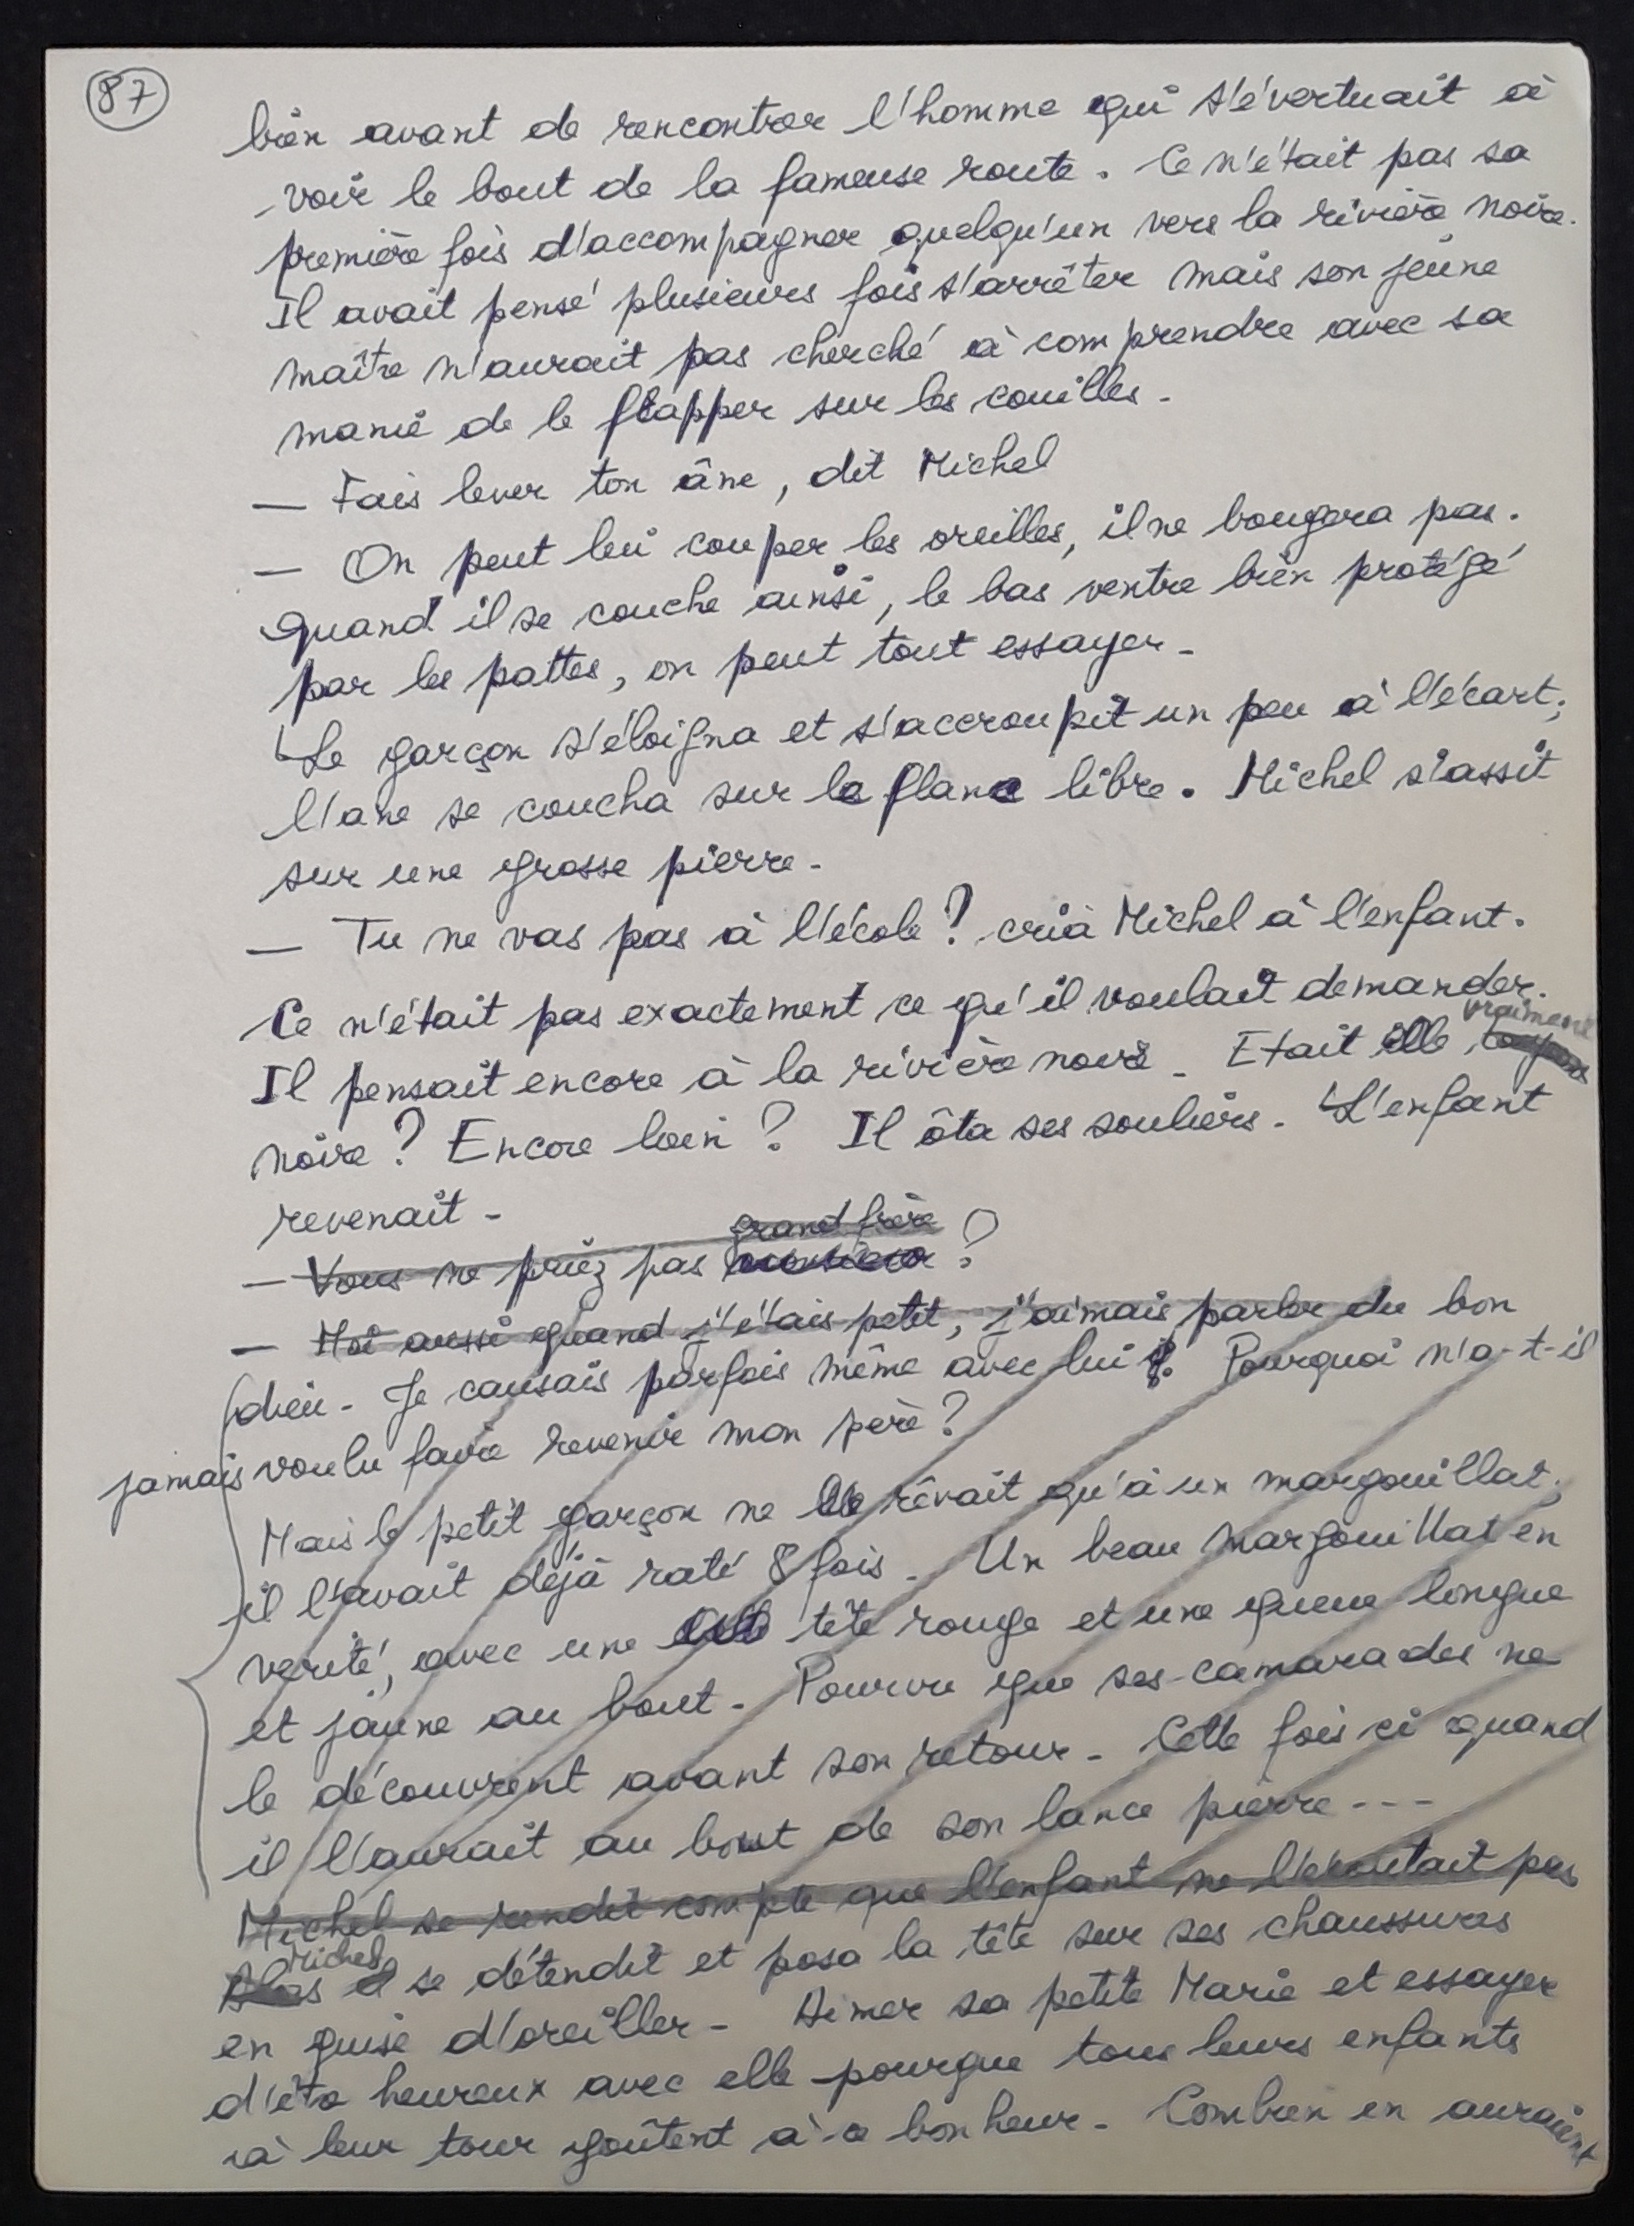 87
bien avant de rencontrer l'homme qui s'évertuait à
voir le bout de la fameuse route. Ce n'était pas sa
première fois d'accompagner quelqu'un vers la rivière noire.
Il avait pensé plusieurs fois s'arrêter mais son jeune
maître n'aurait pas cherché à comprendre avec sa
manie de le frapper sur les couilles.
— Fais lever ton âne, dit Michel
— On peut lui couper les oreilles, il ne bougera pas.
Quand il se couche ainsi, le bas ventre bien protégé
par les pattes, on peut tout essayer.
Le garçon s'éloigna et s'accroupit un peu à l'écart;
l'ane se coucha sur le flanc libre. Michel s'assit
sur une grosse pierre.
— Tu ne vas pas à l'école? cria Michel à l'enfant.
Ce n'était pas exactement ce qu'il voulait demander.
vraiment
Il pensait encore à la rivière noire. Etait elle
noire? Encore loin? Il ôta ses souliers. L'enfant
revenait.
grand frère
— Vous ne priez pas monsieur?
— Moi aussi quand j'étais petit, j'aimais parler du bon
dieu. Je causais parfois même avec lui. Pourquoi n'a-t-il
jamais voulu faire revenir mon père?
Mais le petit garçon ne rêvait qu'à un margouillat;
il l'avait déjà raté 8 fois. Un beau margouillat en
verité, avec une tête rouge et une queue longue
et jaune au bout. Pourvu que ses camarades ne
le découvrent avant son retour. Cette fois ci quand
il l'aurait au bout de son lance pierre---
Michel se rendit compte que l'enfant ne l'écoutait pas
Michel
Alas il se détendit et posa la tête sur ses chaussures
en guise d'oreiller. Aimer sa petite Marie et essayer
d'être heureux avec elle pourque tous leurs enfants
à leur tour goûtent à ce bonheur. Combien en auraient